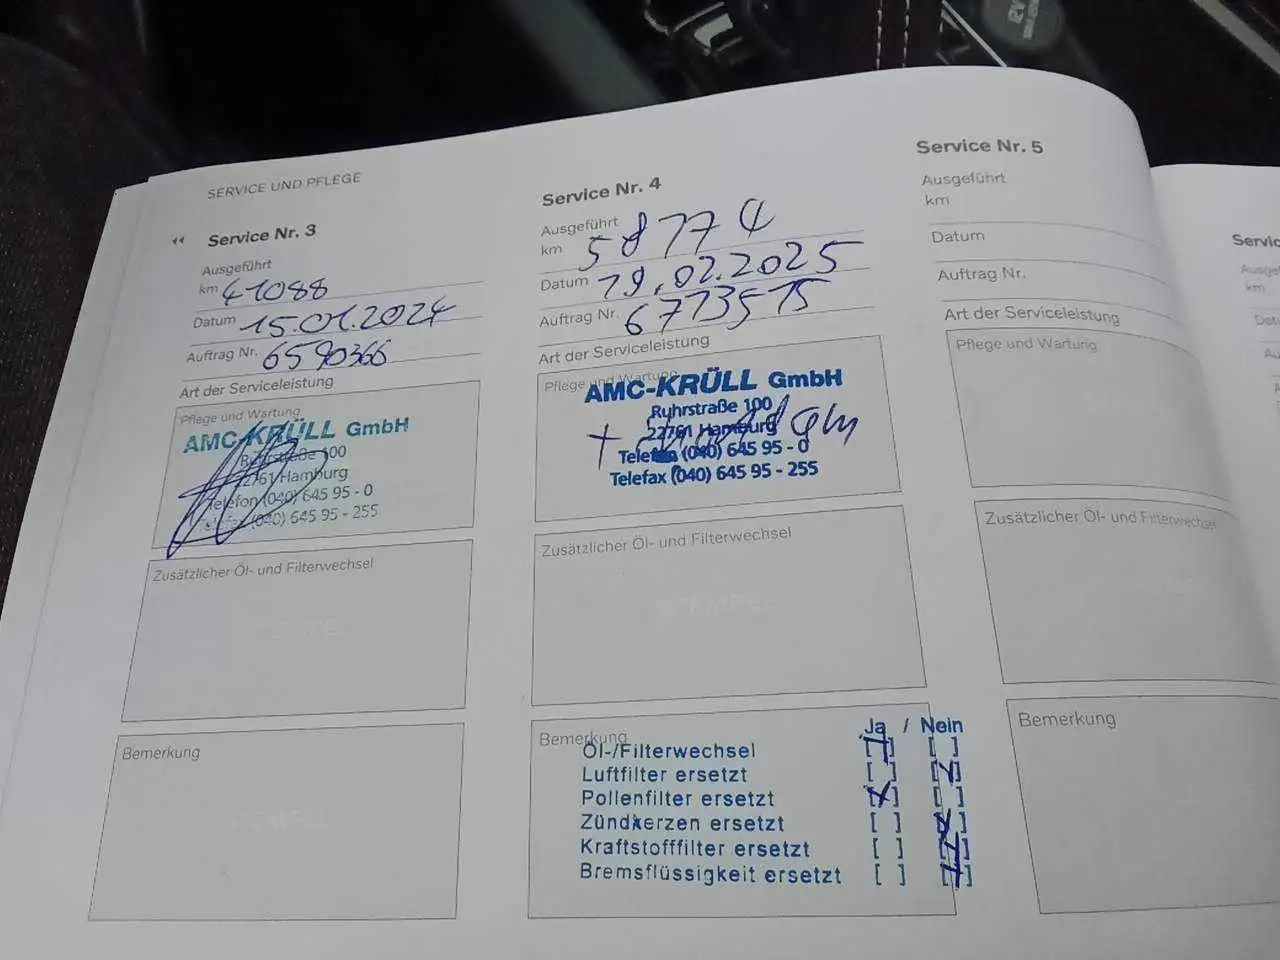 SERVICE UND PFLEGE
Service Nr. 3
Ausgeführt
km 41088
Datum 15.01.2024
Auftrag Nr. 6590366
Art der Serviceleistung
Pflege und Wartung
AMC-KRÜLL GmbH
Ruhrstraße 100
22761 Hamburg
Telefon (040) 645 95 - 0
Telefax (040) 645 95 - 255
Zusätzlicher Öl- und Filterwechsel
STEMPEL
Bemerkung
STEMPEL
Service Nr. 4
Ausgeführt
km 58774
Datum 19.02.2025
Auftrag Nr. 6773515
Art der Serviceleistung
Pflege und Wartung
AMC-KRÜLL GmbH
Ruhrstraße 100
22761 Hamburg
Telefon (040) 645 95 - 0
Telefax (040) 645 95 - 255
Zusätzlicher Öl- und Filterwechsel
STEMPEL
Bemerkung
Ja / Nein
Öl-/Filterwechsel [ ] [ ]
Luftfilter ersetzt [ ] [ ]
Pollenfilter ersetzt [x] [ ]
Zündkerzen ersetzt [ ] [x]
Kraftstofffilter ersetzt [ ] [x]
Bremsflüssigkeit ersetzt [ ] [x]
Service Nr. 5
Ausgeführt
km
Datum
Auftrag Nr.
Art der Serviceleistung
Pflege und Wartung
Zusätzlicher Öl- und Filterwechsel
Bemerkung
12V